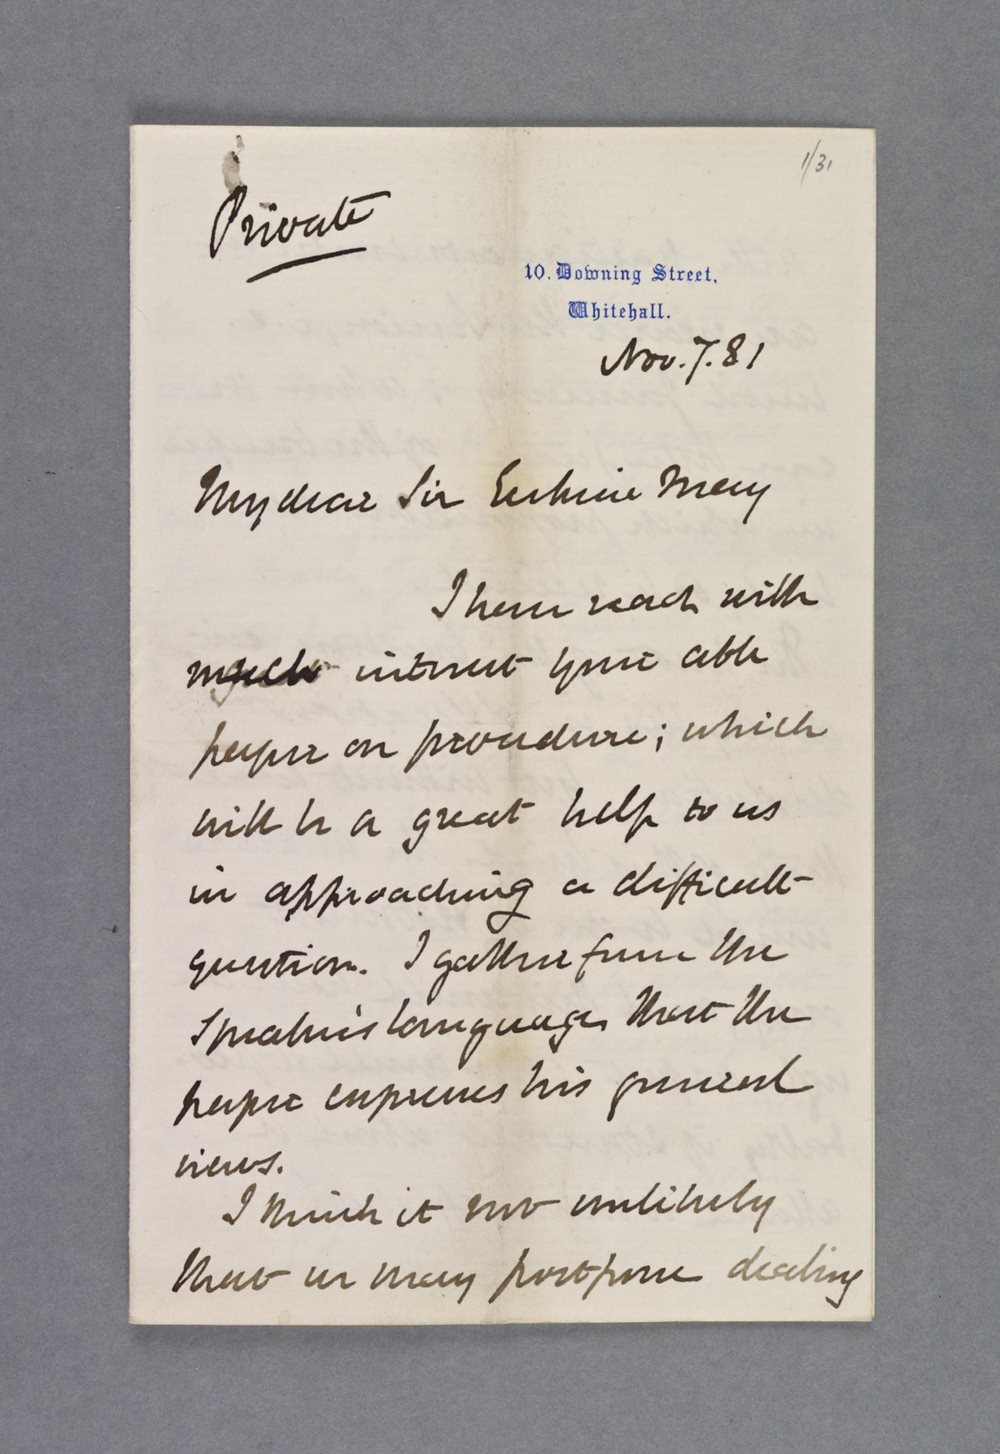 1/31
Private
10. Downing Street,
Whitehall.
Nov. 7. 81
My dear Sir Erskine May
I have read with
much interest your able
paper on procedure; which
will be a great help to us
in approaching a difficult
question. I gather from the
Speaker's language that the
paper expresses his general
views.
I think it not unlikely
that we may postpone dealing